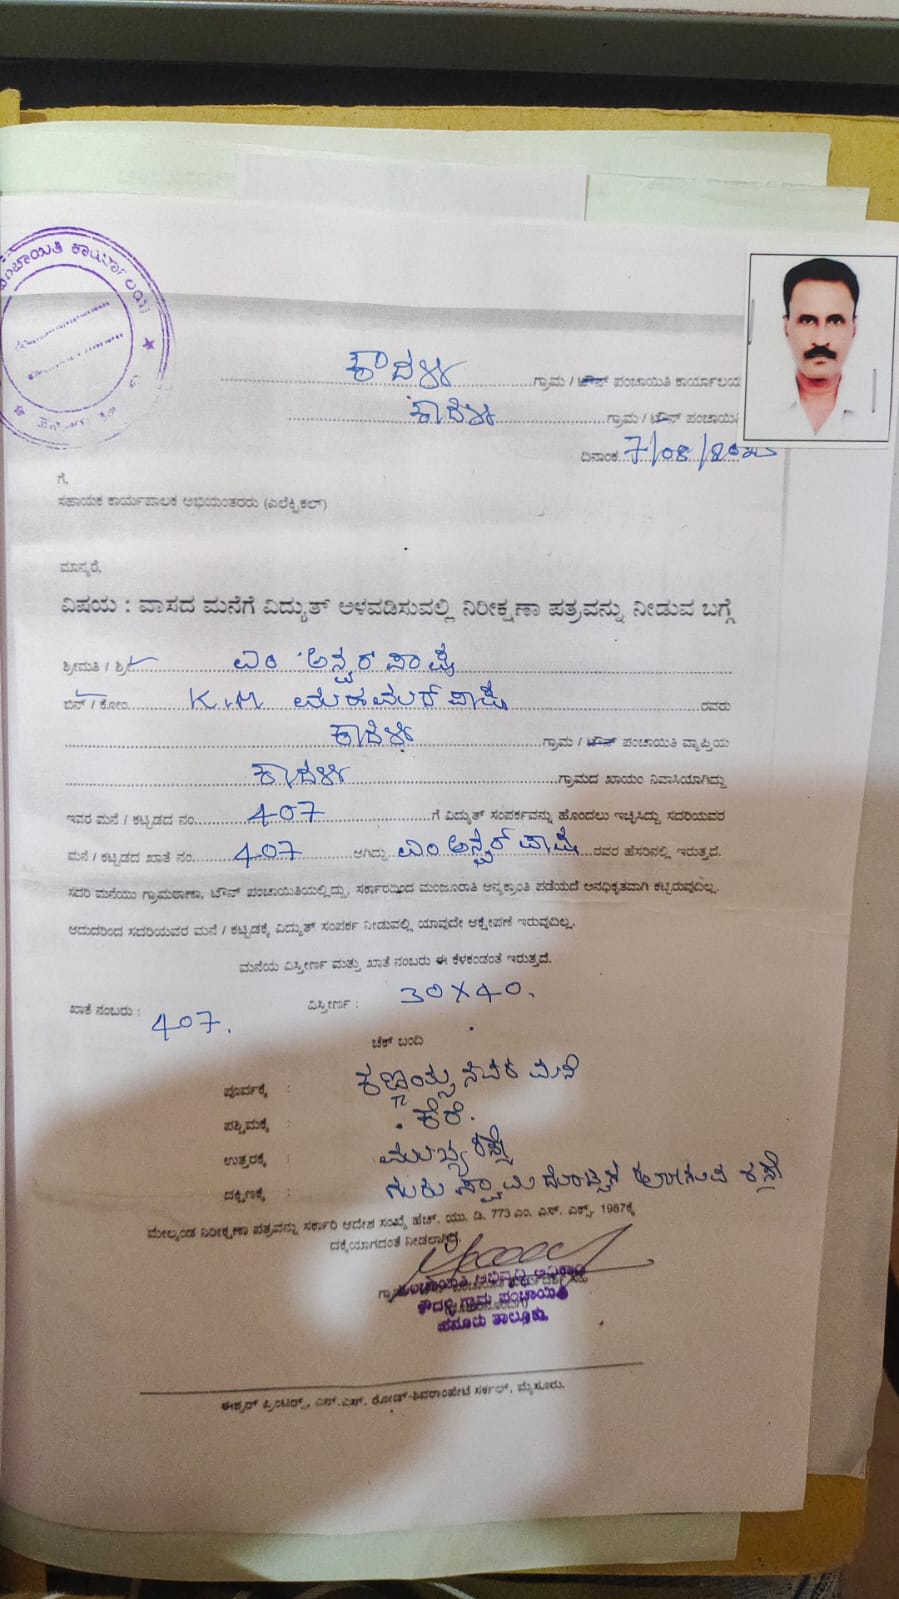 ಪಂಚಾಯಿತಿ ಕಾರ್ಯಾಲಯ
ಕೌದಳ್ಳಿ ಗ್ರಾಮ / ಟೌನ್ ಪಂಚಾಯಿತಿ ಕಾರ್ಯಾಲಯ
ಗ್ರಾಮ / ಟೌನ್ ಪಂಚಾಯಿ
ದಿನಾಂಕ 7/08/
ಗೆ,
ಸಹಾಯಕ ಕಾರ್ಯಪಾಲಕ ಅಭಿಯಂತರರು (ಎಲೆಕ್ಟ್ರಿಕಲ್)
ಮಾನ್ಯರೆ,
ವಿಷಯ : ವಾಸದ ಮನೆಗೆ ವಿದ್ಯುತ್ ಅಳವಡಿಸುವಲ್ಲಿ ನಿರೀಕ್ಷಣಾ ಪತ್ರವನ್ನು ನೀಡುವ ಬಗ್ಗೆ
ಶ್ರೀಮತಿ / ಶ್ರೀ ಎಂ ಅನ್ವರ್ ಪಾಷ
ಬಿನ್ / ಕೋಂ K.M ಪಾಷ ರವರು
ಗ್ರಾಮ / ಟೌನ್ ಪಂಚಾಯಿತಿ ವ್ಯಾಪ್ತಿಯ
ಗ್ರಾಮದ ಖಾಯಂ ನಿವಾಸಿಯಾಗಿದ್ದು
ಇವರ ಮನೆ / ಕಟ್ಟಡದ ನಂ 407 ಗೆ ವಿದ್ಯುತ್ ಸಂಪರ್ಕವನ್ನು ಹೊಂದಲು ಇಚ್ಛಿಸಿದ್ದು ಸದರಿಯವರ
ಮನೆ / ಕಟ್ಟಡದ ಖಾತೆ ನಂ. 407 ಆಗಿದ್ದು ಎಂ ಅನ್ವರ್ ಪಾಷ ರವರ ಹೆಸರಿನಲ್ಲಿ ಇರುತ್ತದೆ.
ಸದರಿ ಮನೆಯು ಗ್ರಾಮಠಾಣಾ, ಟೌನ್ ಪಂಚಾಯಿತಿಯಲ್ಲಿದ್ದು, ಸರ್ಕಾರದಿಂದ ಮಂಜೂರಾತಿ ಅನ್ಯಕ್ರಾಂತಿ ಪಡೆಯದೆ ಅನಧಿಕೃತವಾಗಿ ಕಟ್ಟಿರುವುದಿಲ್ಲ.
ಆದುದರಿಂದ ಸದರಿಯವರ ಮನೆ / ಕಟ್ಟಡಕ್ಕೆ ವಿದ್ಯುತ್ ಸಂಪರ್ಕ ನೀಡುವಲ್ಲಿ ಯಾವುದೇ ಆಕ್ಷೇಪಣೆ ಇರುವುದಿಲ್ಲ.
ಮನೆಯ ವಿಸ್ತೀರ್ಣ ಮತ್ತು ಖಾತೆ ನಂಬರು ಈ ಕೆಳಕಂಡಂತೆ ಇರುತ್ತದೆ.
ಖಾತೆ ನಂಬರು : 407. ವಿಸ್ತೀರ್ಣ : 30X40.
ಚೆಕ್ ಬಂದಿ
ಪೂರ್ವಕ್ಕೆ : ಮನೆ
ಪಶ್ಚಿಮಕ್ಕೆ : ಕೆರೆ.
ಉತ್ತರಕ್ಕೆ : ಮುಖ್ಯ ರಸ್ತೆ
ದಕ್ಷಿಣಕ್ಕೆ : ಗುರು ಸ್ವಾಮಿ
ಮೇಲ್ಕಂಡ ನಿರೀಕ್ಷಣಾ ಪತ್ರವನ್ನು ಸರ್ಕಾರಿ ಆದೇಶ ಸಂಖ್ಯೆ ಹೆಚ್. ಯು. ಡಿ. 773 ಎಂ. ಎಸ್. ಎಕ್ಸ್. 1987ಕ್ಕೆ
ದಕ್ಕೆಯಾಗದಂತೆ ನೀಡಲಾಗಿದೆ.
ಪಂಚಾಯಿತಿ ಅಭಿವೃದ್ಧಿ ಅಧಿಕಾರಿ
ಕೌದಳ್ಳಿ ಗ್ರಾಮ ಪಂಚಾಯಿತಿ
ಹನೂರು ತಾಲ್ಲೂಕು.
ಈಶ್ವರ್ ಪ್ರಿಂಟರ್ಸ್, ಎನ್.ಎಸ್. ರೋಡ್-ಶಿವರಾಂಪೇಟೆ ಸರ್ಕಲ್, ಮೈಸೂರು.